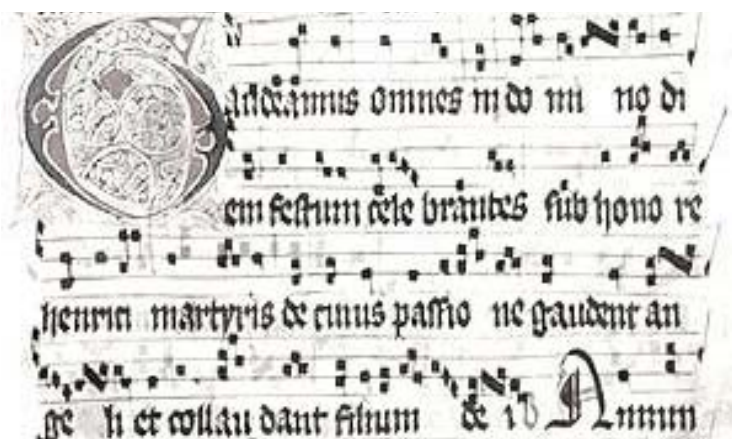 Gaudeamus omnes in do mi no di
em festum cele brantes sub hono re
henrici martyris de cuius passio ne gaudent an
ge li et collau dant filium de i